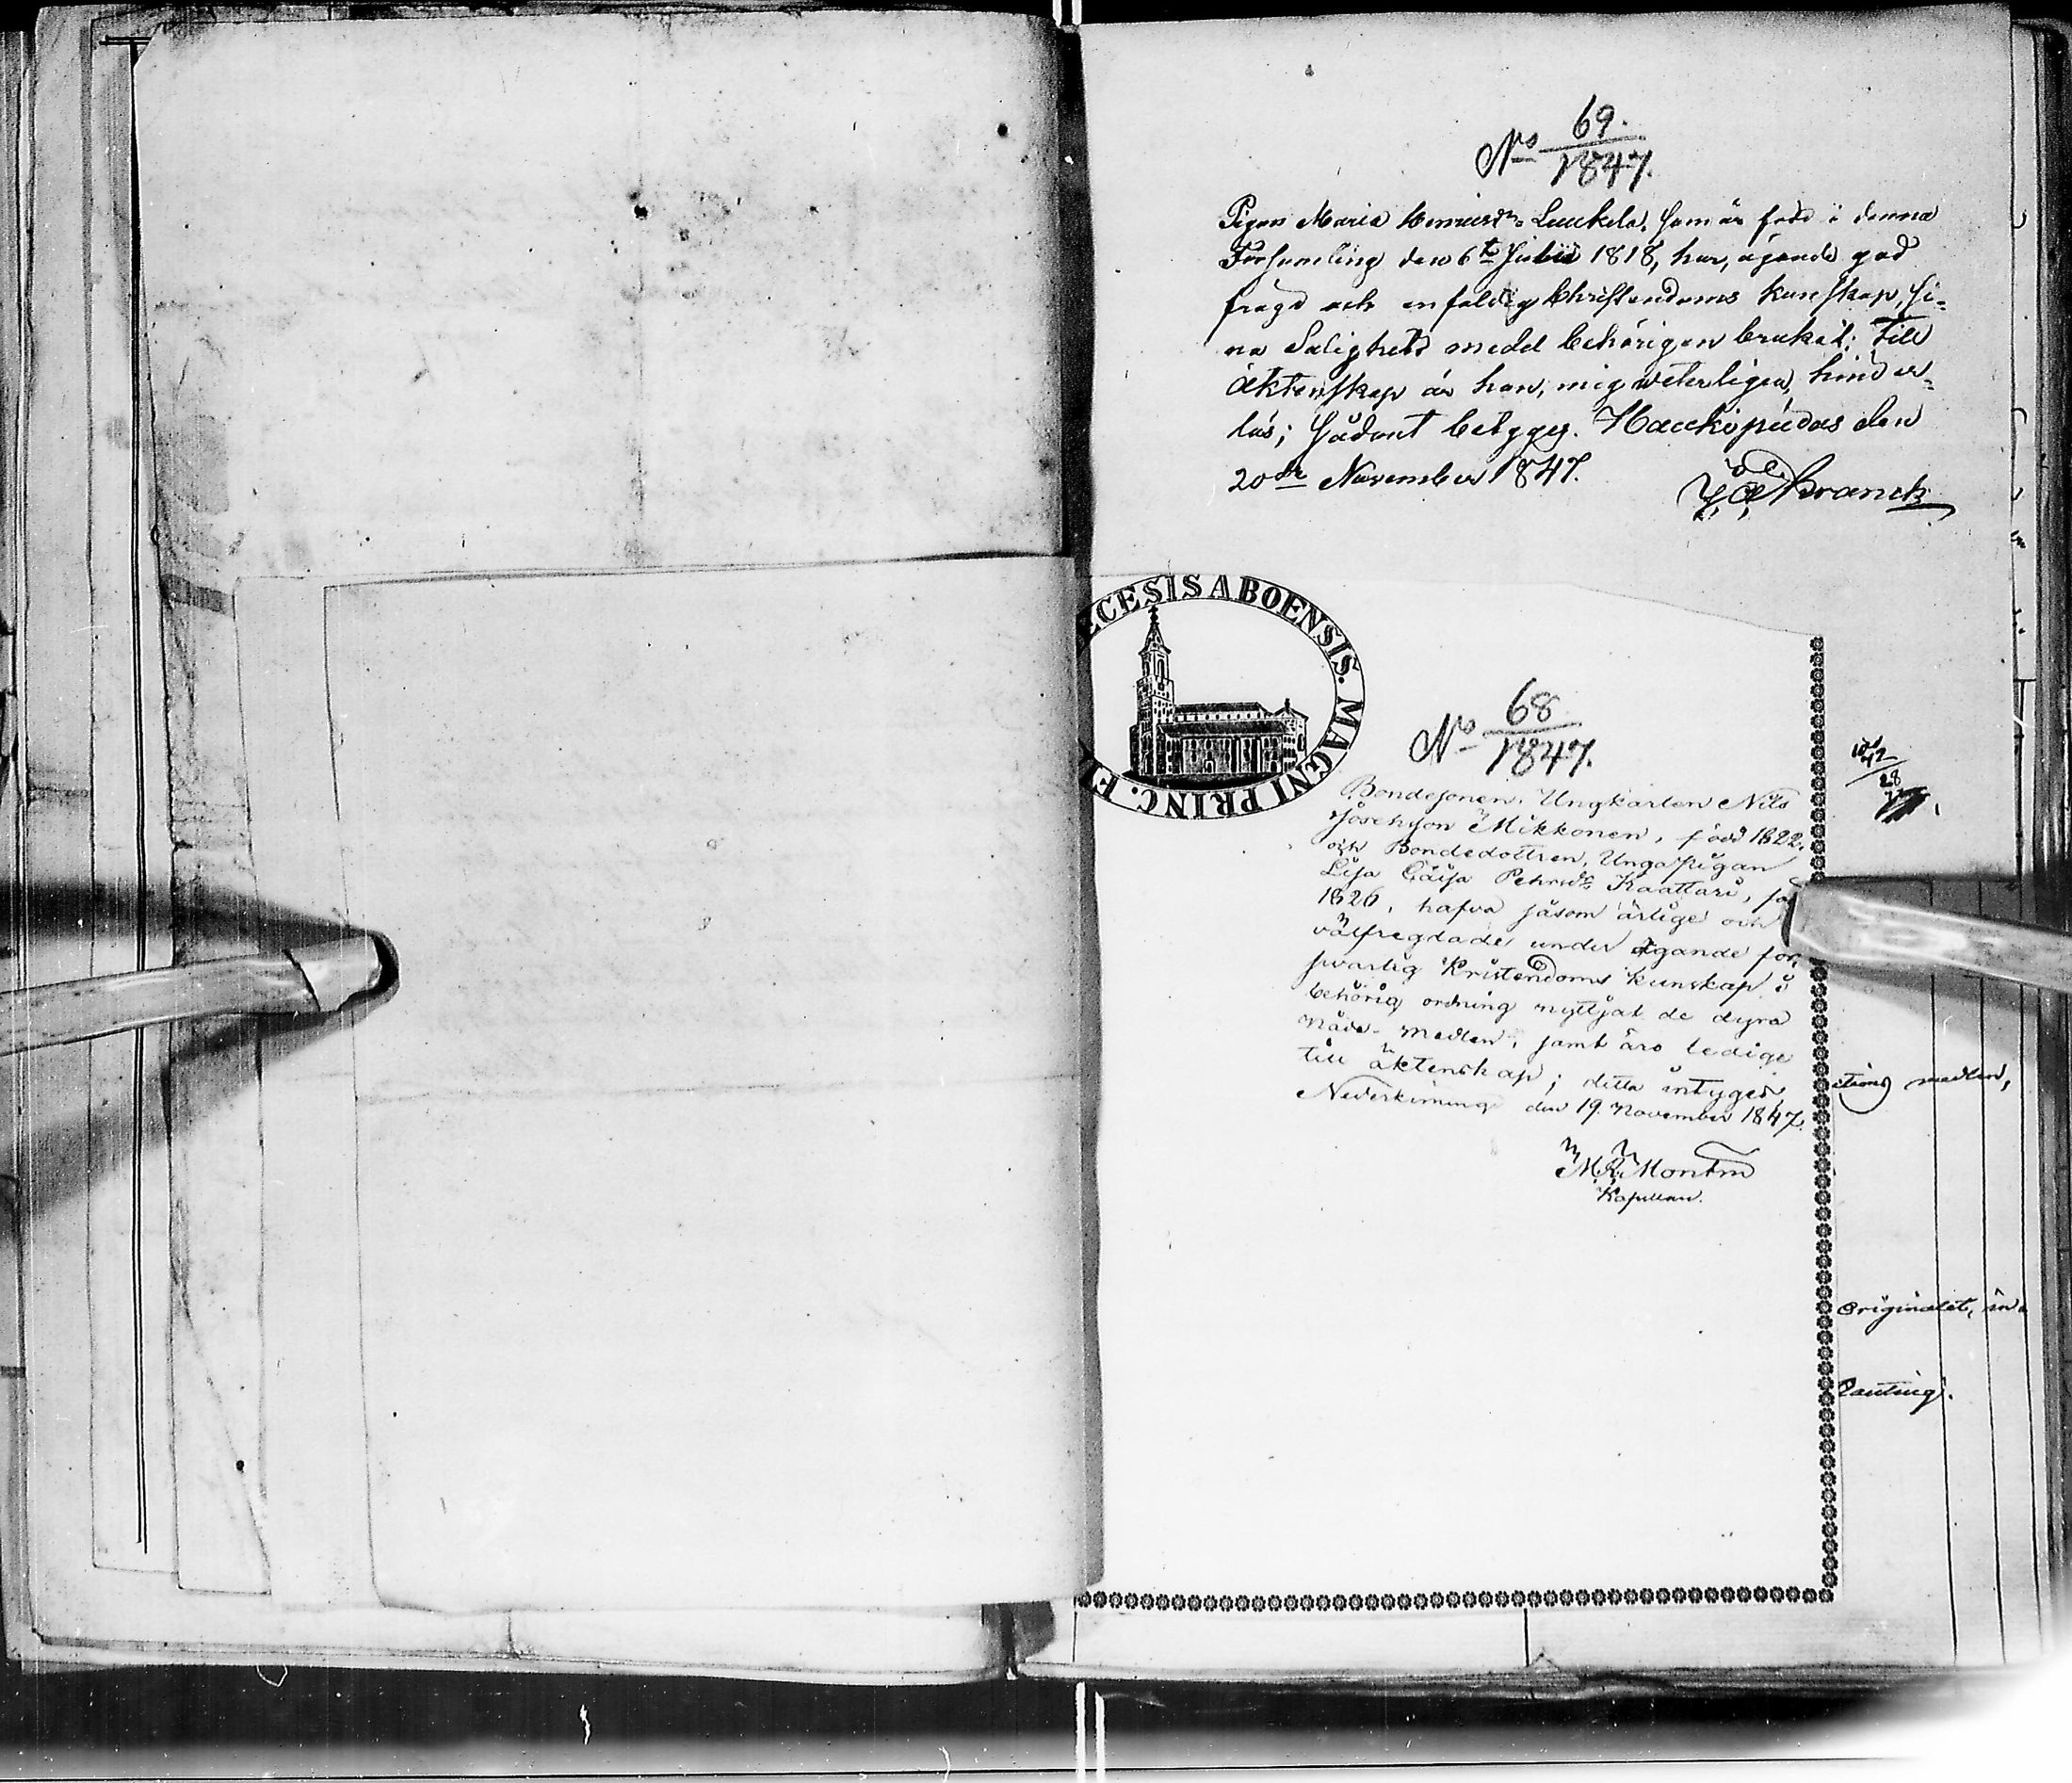 No 69.
1847.
Pigan Maria Henriksdr Luukela, som är född i denna
Församling den 6te Julii 1818, har, ägande god
frägd och enfaldig Christendoms kunskap, si-
na Salighets medel behörigen brukat; Till
äktenskap är hon, mig veterligen, hinder-
lös; sådant betyges. Haukipudas den
20de November 1847.
Franck
ECESIS ABOENSIS. MAGNI PRINC. F
No 68
1847.
Bondesonen, Ungkarlen Nils
Josephson Mikkonen, född 1822,
och Bondedottren, Unga pigan
Lisa Caisa Pehrsdr Kaattari, fö
1826, hafva såsom ärlige och
välfregdade under ägande för-
svarlig Kristendoms kunskap i
behörig ordning nyttjat de dyra
nåde-medlen, samt äro ledige
till äktenskap; detta intygas,
Neder Kiiming den 19. November 1847.
M. R. Montin
Kapellan.
itions medlen,
Originalet, in